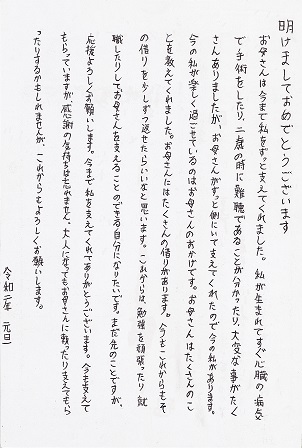 明けましておめでとうございます
お母さんは今まで私をずっと支えてくれました。私が生まれてすぐ心臓の病気
で手術をしたり、二歳の時に難聴であることが分かったり、大変な事がたく
さんありましたが、お母さんがずっと側にいて支えてくれたので今の私があります。
今の私が楽しく過ごせているのはお母さんのおかげです。お母さんはたくさんのこ
とを教えてくれました。お母さんにはたくさんの借りがあります。今もこれからもそ
の借りを少しずつ返せたらいいなと思います。これからは、勉強を頑張ったり、就
職したりしてお母さんを支えることのできる自分になりたいです。まだ先のことですが、
応援よろしくお願いします。今まで私を支えてくれてありがとうございます。今も支えて
もらっていますが、感謝の気持ちは忘れません。大人になってもお母さんに頼ったり支えてもら
ったりするかもしれませんが、これからもよろしくお願いします。
令和二年 元旦